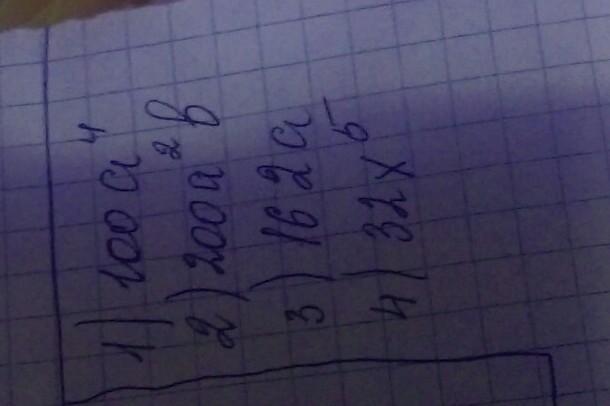 1) 100a⁴
2) 200a²b
3) 162a
4) 32x⁵